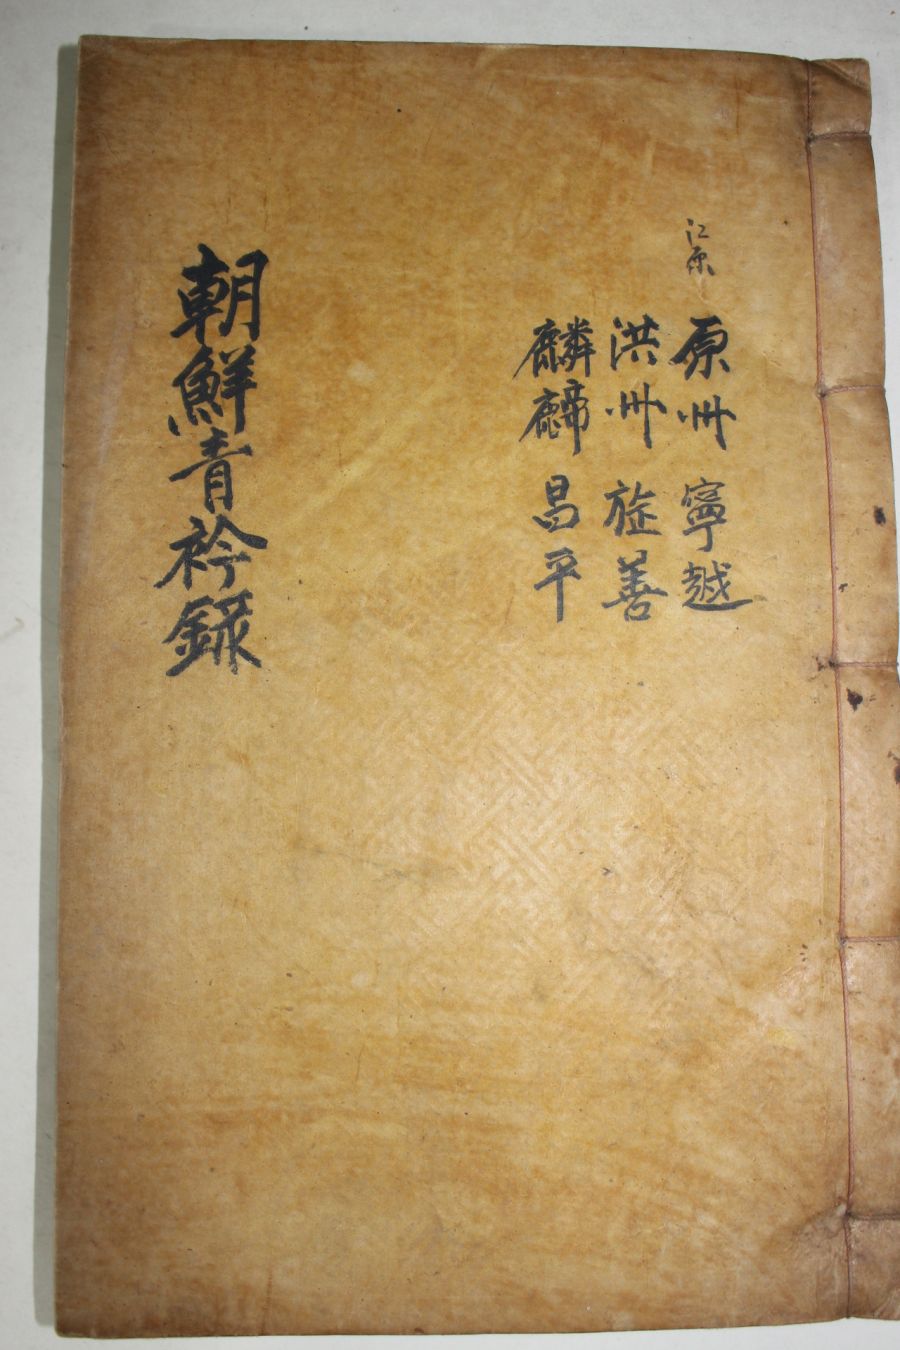 江原
原州 寧越
洪州 旌善
麟 昌平
朝鮮青衿錄